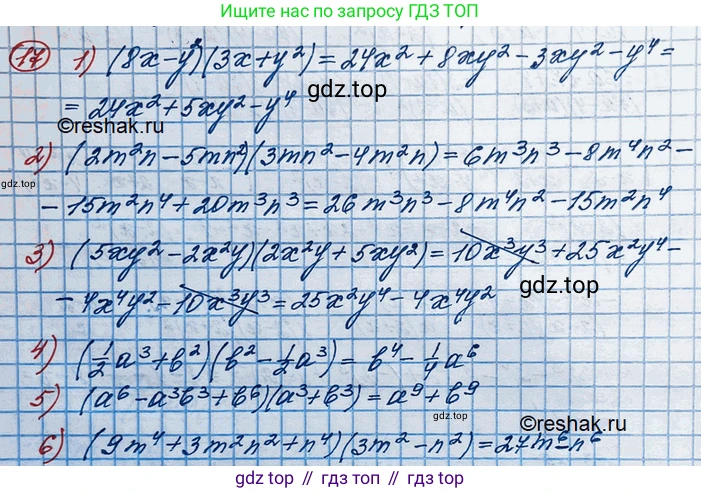 Ищите нас в поиске по запросу ГДЗ ТОП
17 1) (8x-y²)(3x+y²)=24x²+8xy²-3xy²-y⁴=
=24x²+5xy²-y⁴
gdz.top
©reshak.ru
2) (2m²n-5mn²)(3mn²-4m²n)=6m³n³-8m⁴n²-
gdz.top
-15m²n⁴+20m³n³=26m³n³-8m⁴n²-15m²n⁴
3) (5xy²-2x²y)(2x²y+5xy²)=10x³y³+25x²y⁴-
gdz.top
-4x⁴y²-10x³y³=25x²y⁴-4x⁴y²
4) (1/2a³+b²)(b²-1/2a³)=b⁴-1/4a⁶
5) (a⁶-a³b³+b⁶)(a³+b³)=a⁹+b⁹
gdz.top
©reshak.ru
6) (9m⁴+3m²n²+n⁴)(3m²-n²)=27m⁶-n⁶
gdz.top // gdz.top // gdz.top